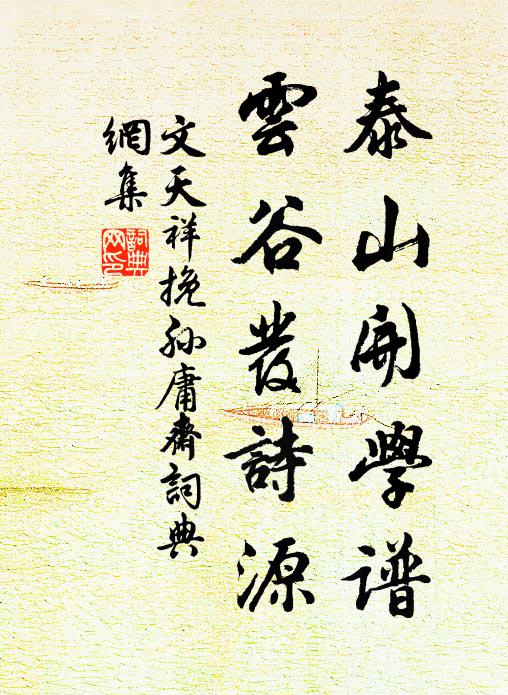 泰山開學譜
雲谷發詩源
文天祥挽孫庸齋詞典
網集
詞典網印